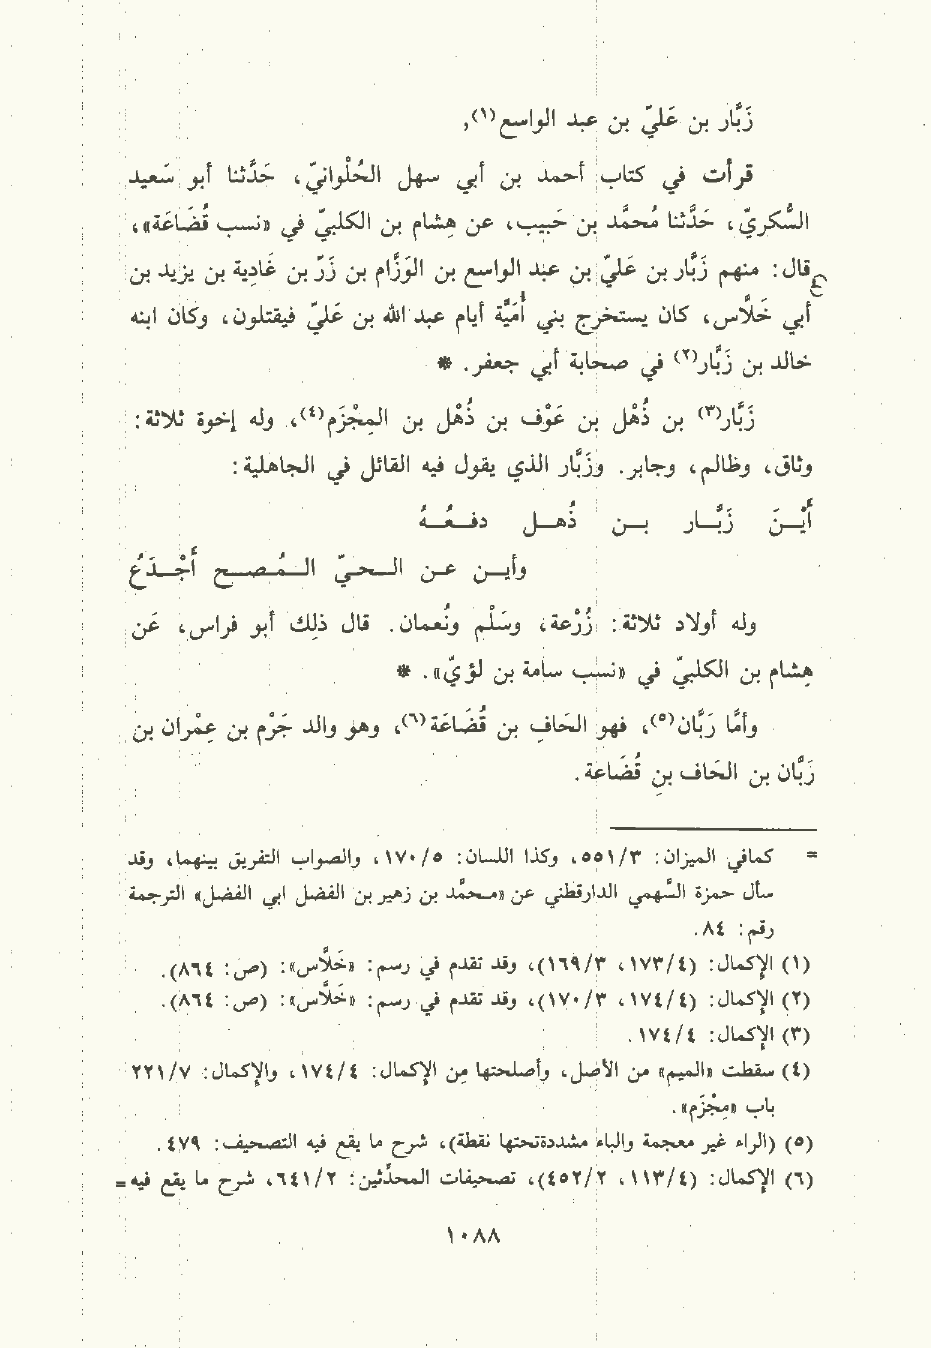 زَبَّار بن عَليّ بن عبد الواسع(١),
قرأت في كتاب أحمد بن أبي سهل الحُلْوانيّ، حَدَّثنا أبو سَعيد
السُّكريّ، حَدَّثنا مُحمَّد بن حَبيب، عن هِشام بن الكلبيّ في «نسب قُضَاعَة»،
قال: منهم زَبَّار بن عَليّ بن عبد الواسع بن الوَزَّام بن زَرّ بن غَادِية بن يزيد بن
أبي خَلَّاس، كان يستخرج بني أُمَيَّة أيام عبد الله بن عَليّ فيقتلون، وكان ابنه
خالد بن زَبَّار(٢) في صحابة أبي جعفر. *
زَبَّار(٣) بن ذُهْل بن عَوْف بن ذُهْل بن المِجْزَم(٤)، وله إخوة ثلاثة:
وثاق، وظالم، وجابر. وزَبَّار الذي يقول فيه القائل في الجاهلية:
أَيْـنَ زَبَّـار بـن ذُهـل دفـعُـهُ
وأيـن عـن الـحـيّ الـمُـصـح أَجْـدَعُ
وله أولاد ثلاثة: زُرْعة، وسَلْم ونُعمان. قال ذلِك أبو فراس، عَن
هِشام بن الكلبيّ في «نسب سامة بن لؤيّ». *
وأمَّا زَبَّان(٥)، فهو الحَافِ بن قُضَاعَة(٦)، وهو والد جَرْم بن عِمْران بن
زَبَّان بن الحَاف بن قُضَاعة.
= كمافي الميزان: ٥٥١/٣، وكذا اللسان: ١٧٠/٥، والصواب التفريق بينهما، وقد
سأل حمزة السَّهمي الدارقطني عن «مـحمَّد بن زهير بن الفضل ابي الفضل» الترجمة
رقم: ٨٤.
(١) الإكمال: (١٧٣/٤، ١٦٩/٣)، وقد تقدم في رسم: «خَلَّاس»: (ص: ٨٦٤).
(٢) الإكمال: (١٧٤/٤، ١٧٠/٣)، وقد تقدم في رسم: «خَلَّاس»: (ص: ٨٦٤).
(٣) الإكمال: ١٧٤/٤.
(٤) سقطت «الميم» من الأصل، وأصلحتها مِن الإكمال: ١٧٤/٤، والإكمال: ٢٢١/٧
باب «مِجْزَم».
(٥) (الراء غير معجمة والباء مشددةتحتها نقطة)، شرح ما يقع فيه التصحيف: ٤٧٩.
(٦) الإكمال: (١١٣/٤، ٤٥٢/٢)، تصحيفات المحدِّثين: ٦٤١/٢، شرح ما يقع فيه=
١٠٨٨